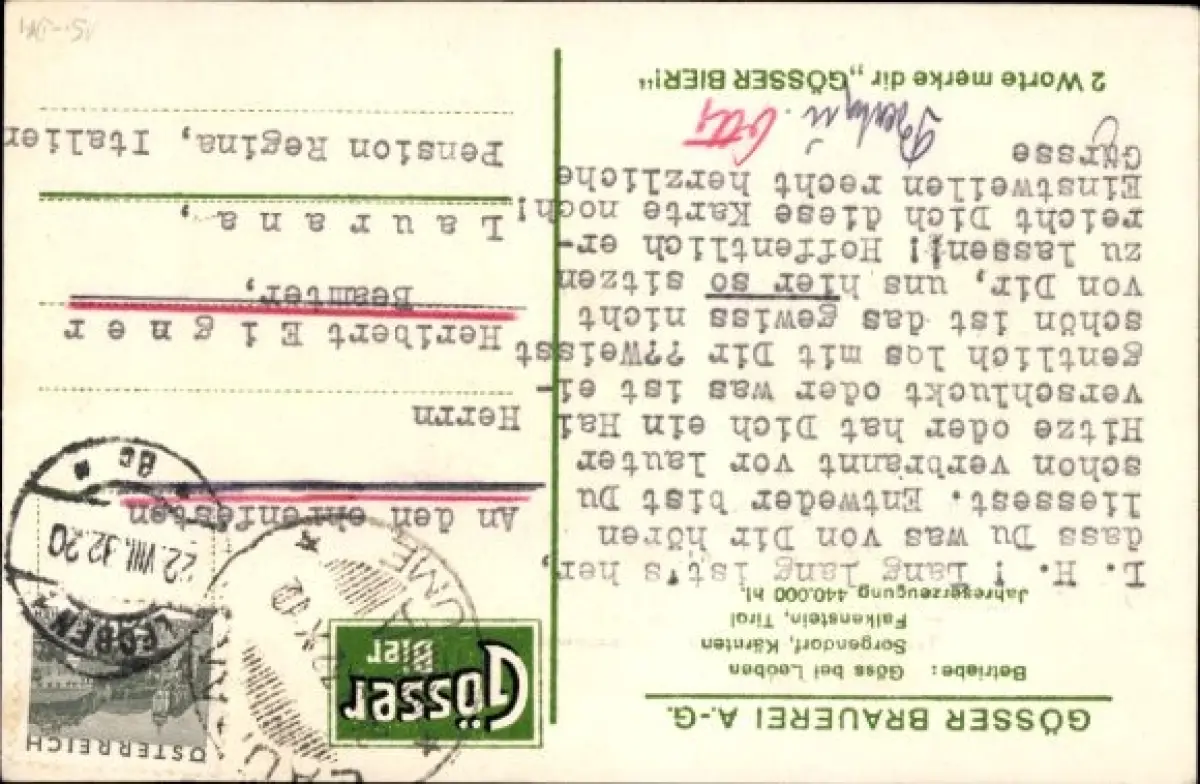 GÖSSER BRAUEREI A.-G.
Betriebe: Göss bei Leoben
Sorgendorf, Kärnten
Falkenstein, Tirol
Jahreserzeugung 440.000 hl.
L. H. ! Lang lang ist's her,
dass Du was von Dir hören
liessest. Entweder bist Du
schon verbrannt vor lauter
Hitze oder hat Dich ein Hai
verschluckt oder was ist ei-
gentlich los mit Dir ??Weisst
schön ist das gewiss nicht
von Dir, uns hier so sitzen
zu lassen! Hoffentlich er-
reicht Dich diese Karte noch!
Einstweilen recht herzliche
Grüsse
2 Worte merke dir „GÖSSER BIER!“
Gösser
BIER
ÖSTERREICH
LEOBEN
22.VIII.32.20
* 8c *
An den ehrenfesten
Herrn
Heribert E i g n e r
Beamter,
L a u r a n a ,
Pension Regina, Italien